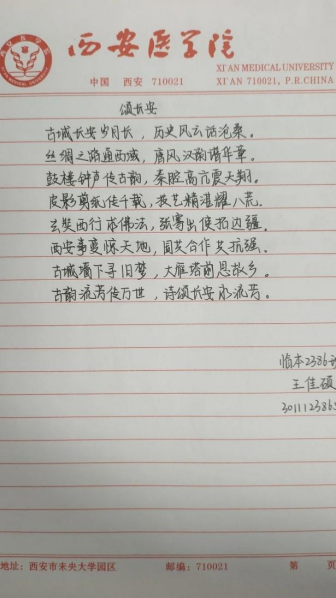 西安医学院
XI'AN MEDICAL UNIVERSITY
中国 西安 710021
XI'AN 710021, P.R.CHINA
颂长安
古城长安岁月长，历史风云话沧桑。
丝绸之路通西域，唐风汉韵谱华章。
鼓楼钟声传古韵，秦腔高亢震天荆。
皮影剪纸传千载，技艺精湛耀八荒。
玄奘西行求佛法，张骞出使拓边疆。
西安事变惊天地，国共合作共抗强。
古城墙下寻旧梦，大雁塔前思故乡。
古韵流芳传万世，诗颂长安永流芳。
本2386
王佳硕
301112386
地址：西安市未央大学园区
邮编：710021
第 页